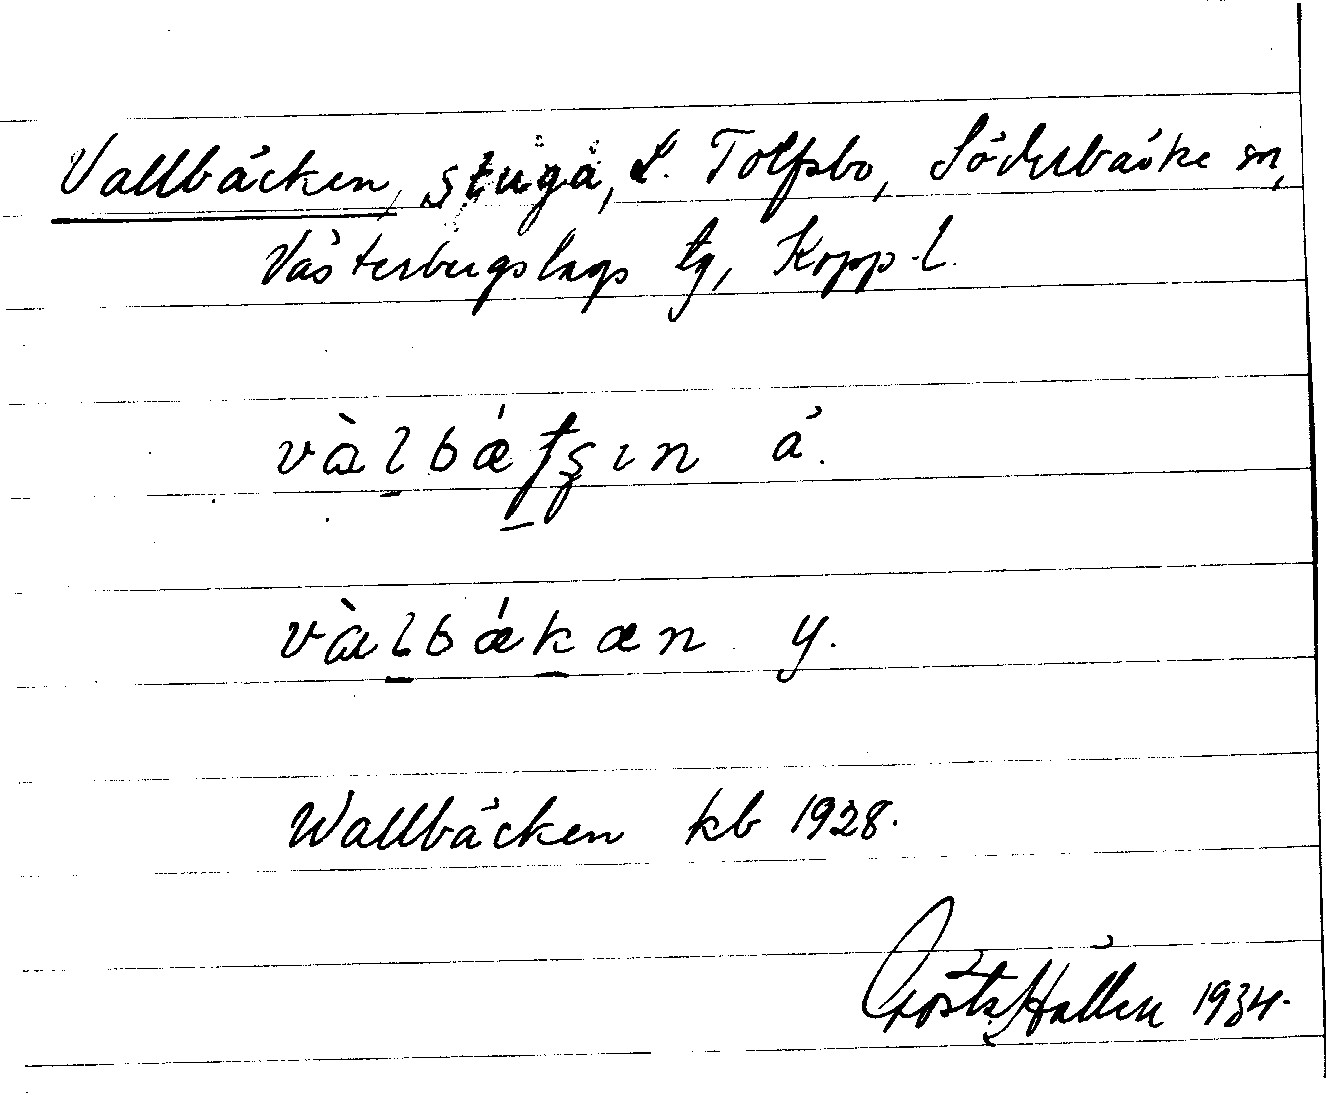 Vallbäcken, stuga, L. Tolfsbo, Söderbärke sn,
Västerbergslags tg, Kopp. l.
và l bǽ ʈʂ ı n ä.
và l bǽ k æ n y.
Wallbäcken kb 1928.
Gösta Hallén 1934.